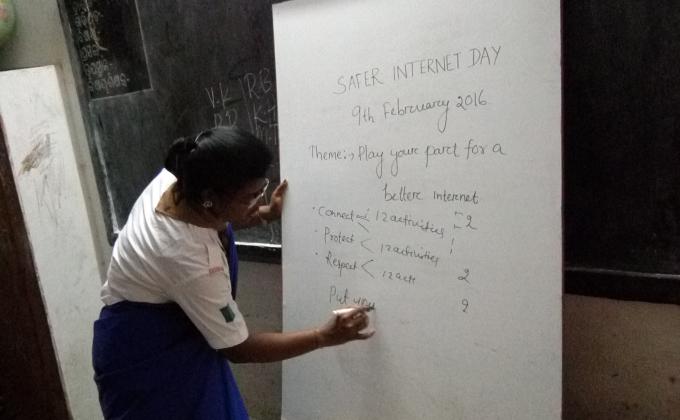 SAFER INTERNET DAY
9th February 2016
Theme:-> Play your part for a
better internet
• Connect < 12 activities 2
• Protect < 12 activities 1
• Respect < 12 acti 2
Put you 2
V.K R.B
P.D